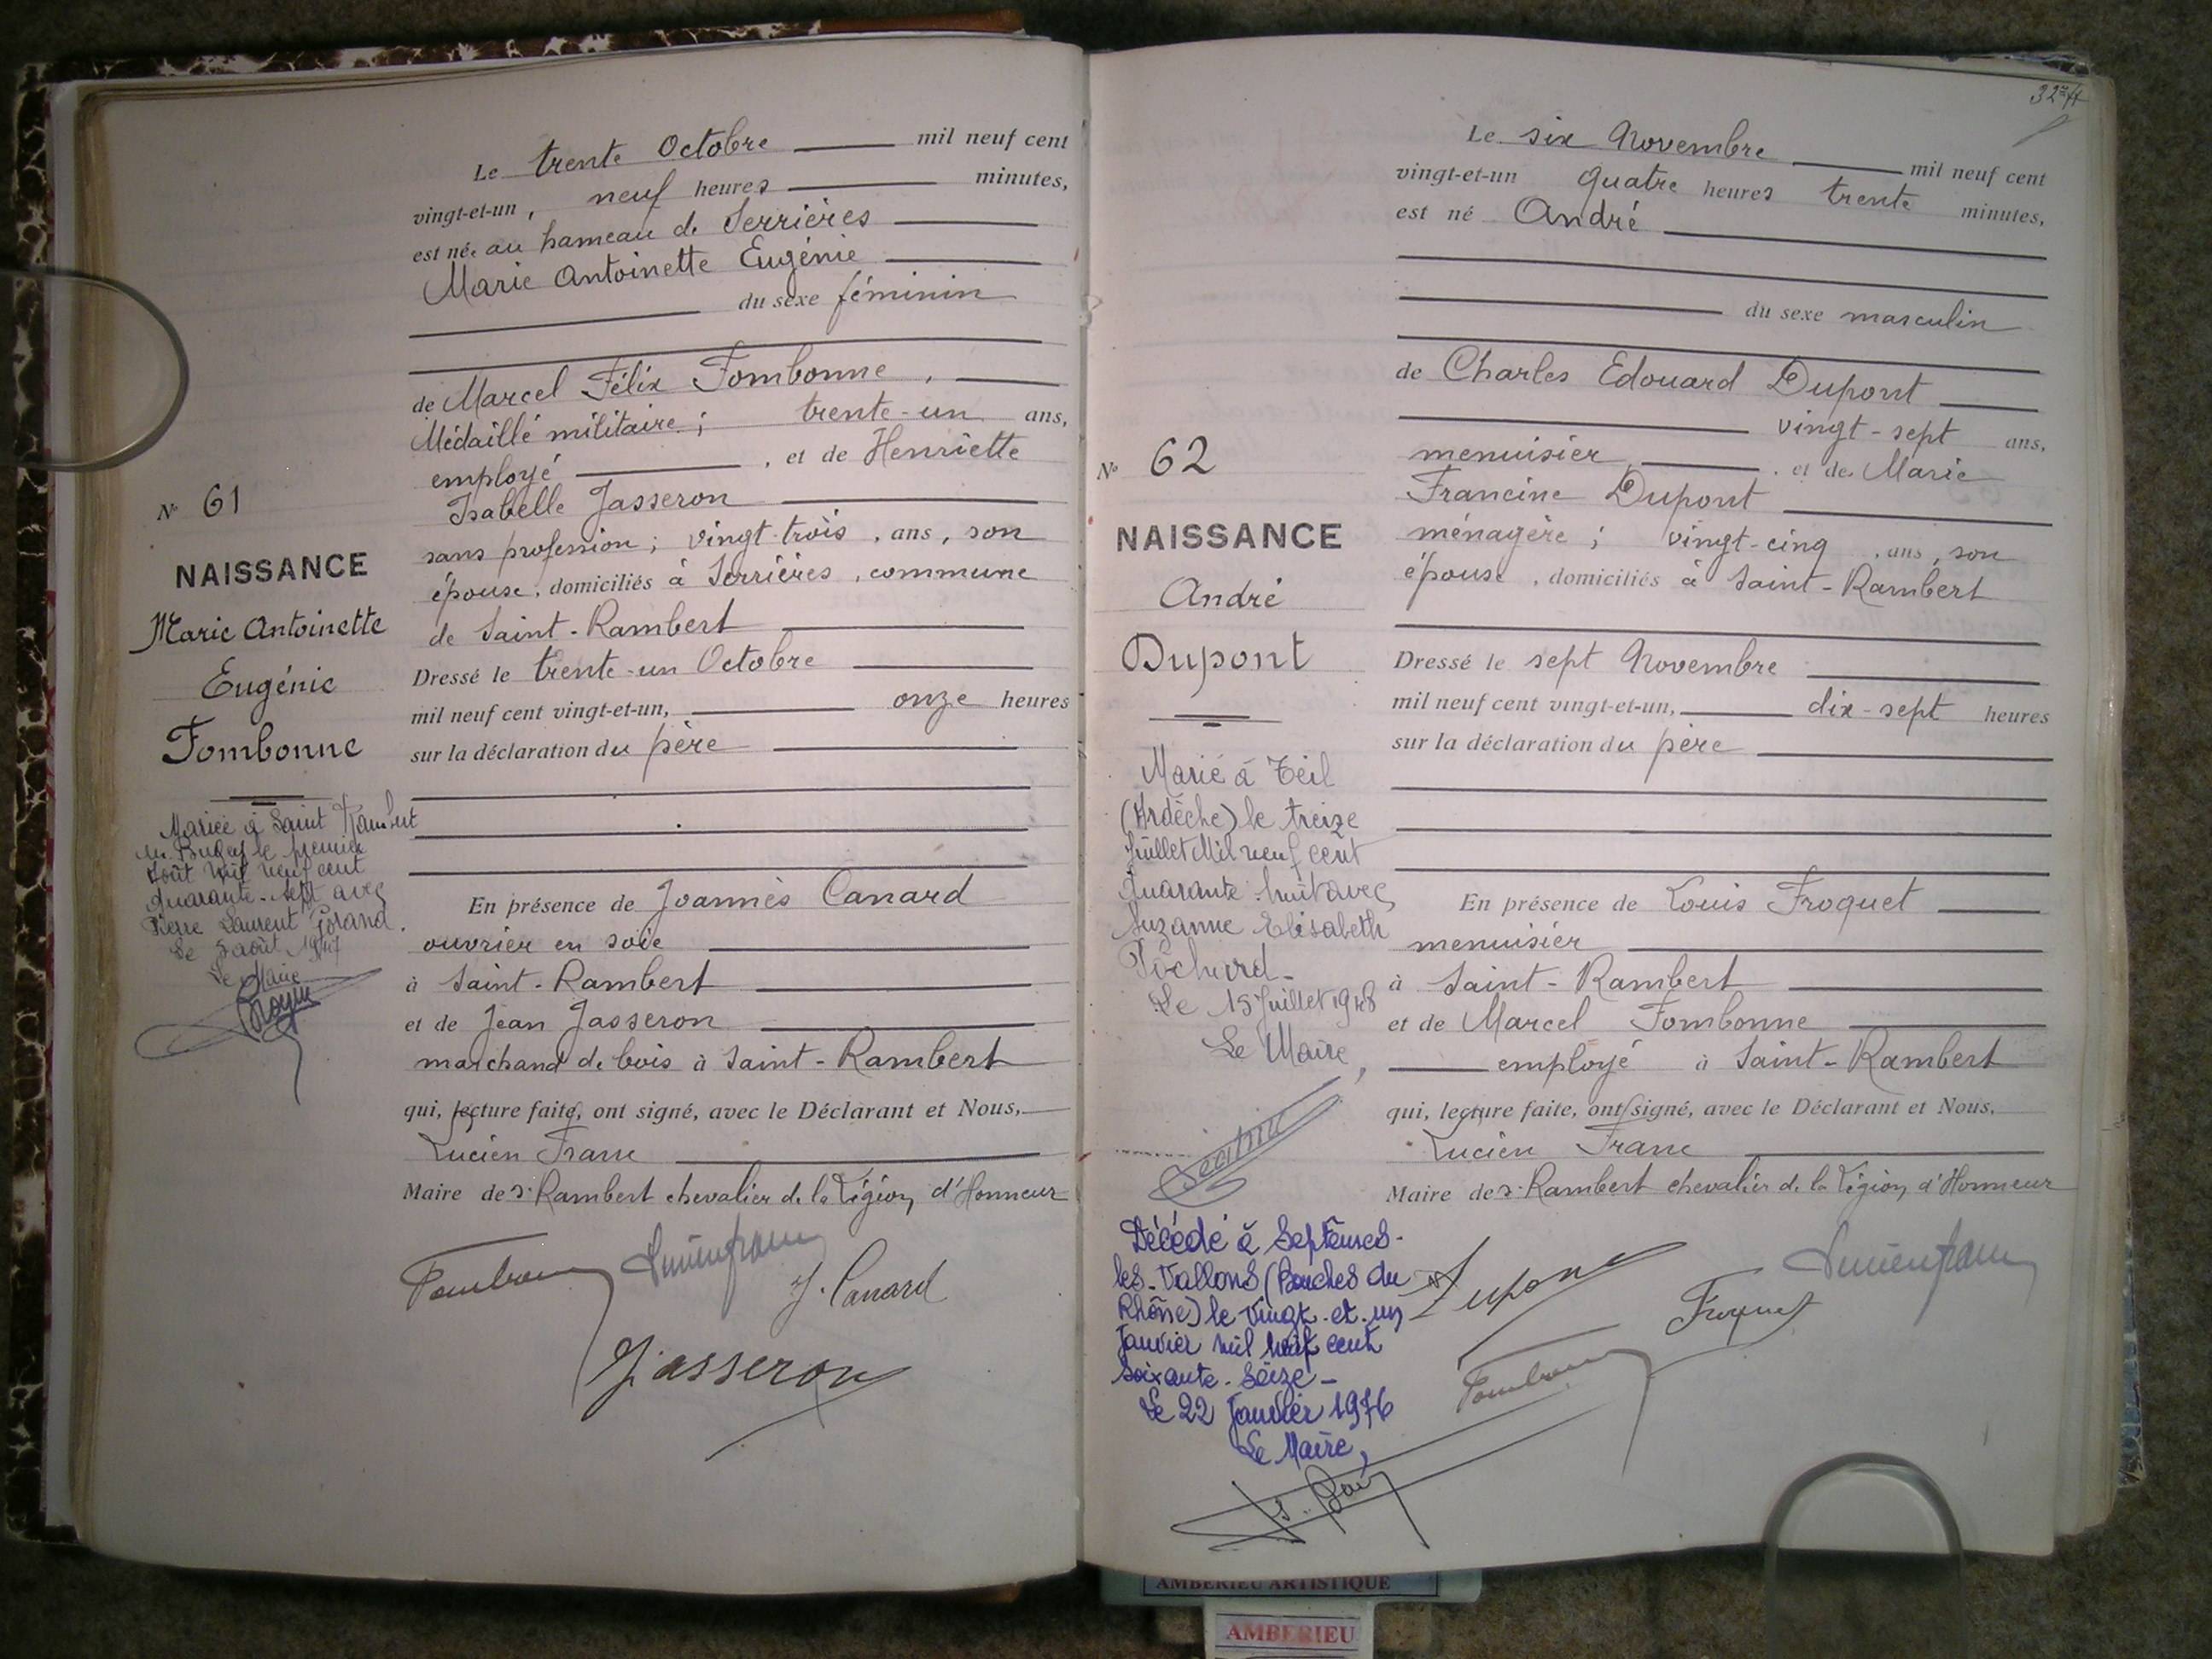 Le trente Octobre mil neuf cent
vingt-et-un, neuf heures minutes,
est née au hameau de Serrières
Marie Antoinette Eugénie
du sexe féminin
de Marcel Félix Fombonne,
Médaillé militaire; trente-un ans,
employé, et de Henriette
Isabelle Jasseron
sans profession; vingt-trois, ans, son
épouse, domiciliés à Serrières, commune
de Saint-Rambert
Dressé le trente-un Octobre
mil neuf cent vingt-et-un, onze heures
sur la déclaration du père
En présence de Joannès Canard
ouvrier en soie
à Saint-Rambert
et de Jean Jasseron
marchand de bois à Saint-Rambert
qui, lecture faite, ont signé, avec le Déclarant et Nous,
Lucien Franc
Maire de St Rambert chevalier de la Légion d'Honneur
J. Canard
J. Jasseron
N° 61
NAISSANCE
Marie Antoinette
Eugénie
Fombonne
Mariée à Saint Rambert
en Bugey le premier
Août mil neuf cent
quarante-sept avec
Pierre Laurent
Le août 1947
Le Maire
32
Le six Novembre mil neuf cent
vingt-et-un quatre heures trente minutes,
est né André
du sexe masculin
de Charles Edouard Dupont
vingt-sept ans,
menuisier, et de Marie
Francine Dupont
ménagère; vingt-cinq, ans, son
épouse, domiciliés à Saint-Rambert
Dressé le sept Novembre
mil neuf cent vingt-et-un, dix-sept heures
sur la déclaration du père
En présence de Louis Froquet
menuisier
à Saint-Rambert
et de Marcel Fombonne
employé à Saint-Rambert
qui, lecture faite, ont signé, avec le Déclarant et Nous,
Lucien Franc
Maire de St Rambert chevalier de la Légion d'Honneur
Dupont
Froquet
N° 62
NAISSANCE
André
Dupont
Marié à Teil
(Ardèche) le treize
Juillet Mil neuf cent
quarante-huit avec
Suzanne Elisabeth
Pochard-
Le 15 Juillet 1948
Le Maire,
Décédé à Septèmes-
les-Vallons (Bouches du
Rhône) le vingt-et-un
Janvier mil neuf cent
soixante-seize-
Le 22 Janvier 1976
Le Maire,
AMBERIEU ARTISTIQUE
AMBERIEU